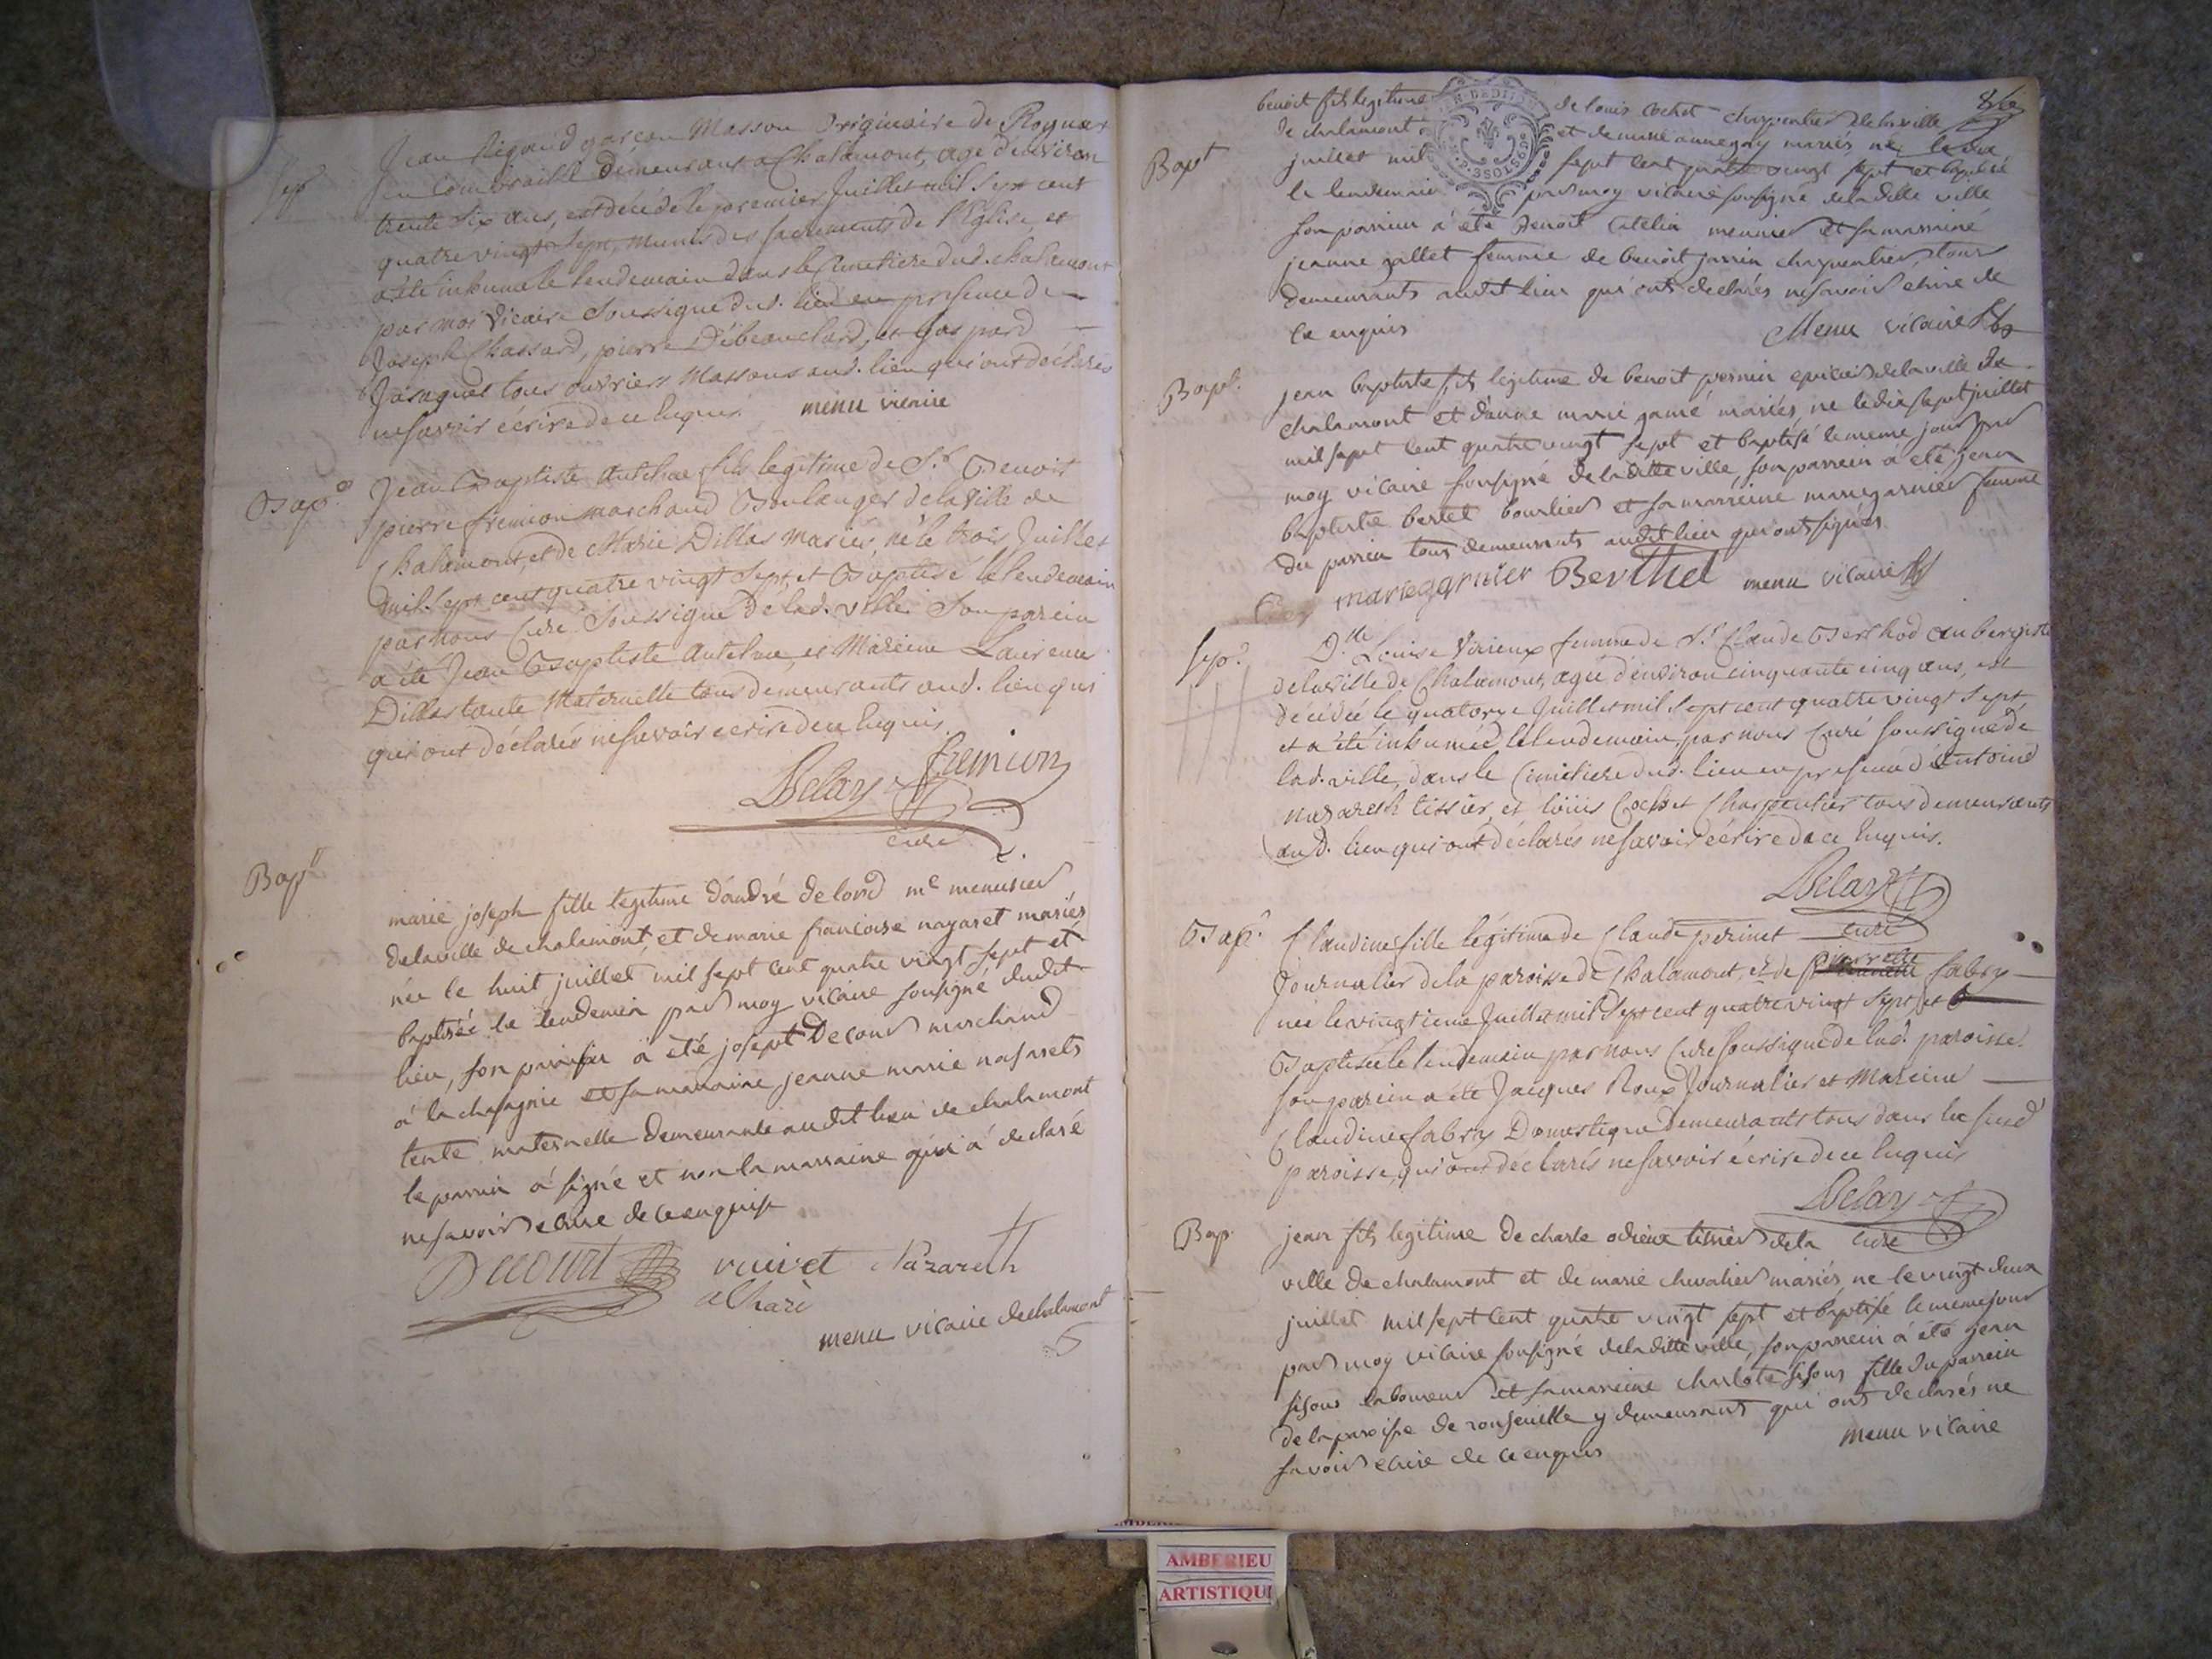 Sep
Jean Rigaud garçon Masson originaire de
en Combraille demeurant a Chalamont, age denviron
trente six ans, est décédé le premier Juillet mil sept cent
quatre vingt sept, munis des sacrements de l'Eglise, et
a été inhumé le lendemain dans le Cimetiere dud. chalamont
par moi Vicaire soussigné dud. lieu en presence de
Joseph Chassard, pierre Debeauchard, et Gaspard
tous ouvriers Massons aud. lieu qui ont déclarés
ne savoir écrire de ce enquis. menu vicaire
Bap.
Jean Baptiste Anthelme fils legitime de Sr. Benoit
pierre fremion marchand Boulanger de la Ville de
Chalamont, et de Marie Dillas Mariés, né le trois Juillet
mil sept cent quatre vingt sept, et Baptisé le lendemain
par nous Curé soussigné de lad. ville. Son parein
a été Jean Baptiste Antelme, et Mareine Laurence
Dillas tante Maternelle tous demeurants aud. lieu qui
qui ont déclarés ne savoir ecrire de ce enquis.
fremion
Delary
curé
Bap
marie joseph fille legitime d'andré delord me menusier
de la ville de chalamont, et de marie francoise nazaret mariés
née le huit juillet mil sept cent quatre vingt sept et
baptisée le lendemin par moy vicaire sousigné dudit
lieu, son parrain à eté josept Decour marchand
à la chasagnie et sa marraine jeanne marie nasarets
tente maternelle demeurante audit lieu de chalamont
le parrin a signé et non la marraine qui a declaré
ne savoir ecrire de ce enquise
Decourt vuivet Nazareth
menu vicaire de chalamont
86
Bapt
benoit fils legitime de louis Cochet charpentier de la ville
de chalamont et de marie anne gay mariés, né le dix
juillet mil sept cent quatre vingt sept et baptisé
le lendemain par moy vicaire sousigné de la ditte ville
son parrin à été Benoit Catelin meunier et sa marraine
jeanne gallet femme de benoit janin charpentier, tous
demeurants audit lieu qui ont declarés ne savoir écrire de
ce enquis
Menu vicaire
Bapt.
jean baptiste fils legitime de benoit pernin epicier de la ville de
chalamont et d'anne marie gamé mariés, ne le dix sept juillet
mil sept cent quatre vingt sept et baptisé le meme jour par
moy vicaire sousigné de la ditte ville, son parrein a eté jean
baptiste bertet bourlier et sa marreinne marie garnier femme
du parrein tous demeurants audit lieu qui ont signés
marie garnier Berthet menu vicaire
Sep.
Dlle Louise Virieux femme de Sr. Claude Berthod aubergiste
de la ville de Chalamont, agée d'environ cinquante cinq ans, est
décédée le quatorze Juillet mil sept cent quatre vingt sept
et a été inhumée le lendemain, par nous Curé soussigné de
lad. ville, dans le Cimetiere dud. lieu en presence d'Antoine
nazareth tissier, et loüis Cochet Charpentier tous demeurants
aud. lieu qui ont déclarés ne savoir écrire de ce enquis.
Delary
curé
Bap.
Claudine fille légitime de Claude perinet
Journalier de la paroisse de Chalamont, et de pierrette fabry
née le vingtieme Juillet mil sept cent quatre vingt sept, et
Baptisée le lendemain par nous Curé soussigné de lad. paroisse.
son parein a été Jacques Roux Journalier et Mareine
Claudine fabry Domestique demeurants tous dans la susd.
paroisse, qui ont declarés ne savoir écrire de ce enquis
Delary
curé
Bap.
jean fils legitime de charle odieux tissier de la
ville de chalamont et de marie chevalier mariés, ne le vingt deux
juillet mil sept cent quatre vingt sept et baptisé le meme jour
par moy vicaire sousigné de la ditte ville, son parrein à été jean
sisous laboureur et sa marreine charlote sisous fille du parrein
de la paroisse de ronseuille y demeurants qui ont declarés ne
savoir ecrire de ce enquis
menu vicaire
AMBERIEU
ARTISTIQU